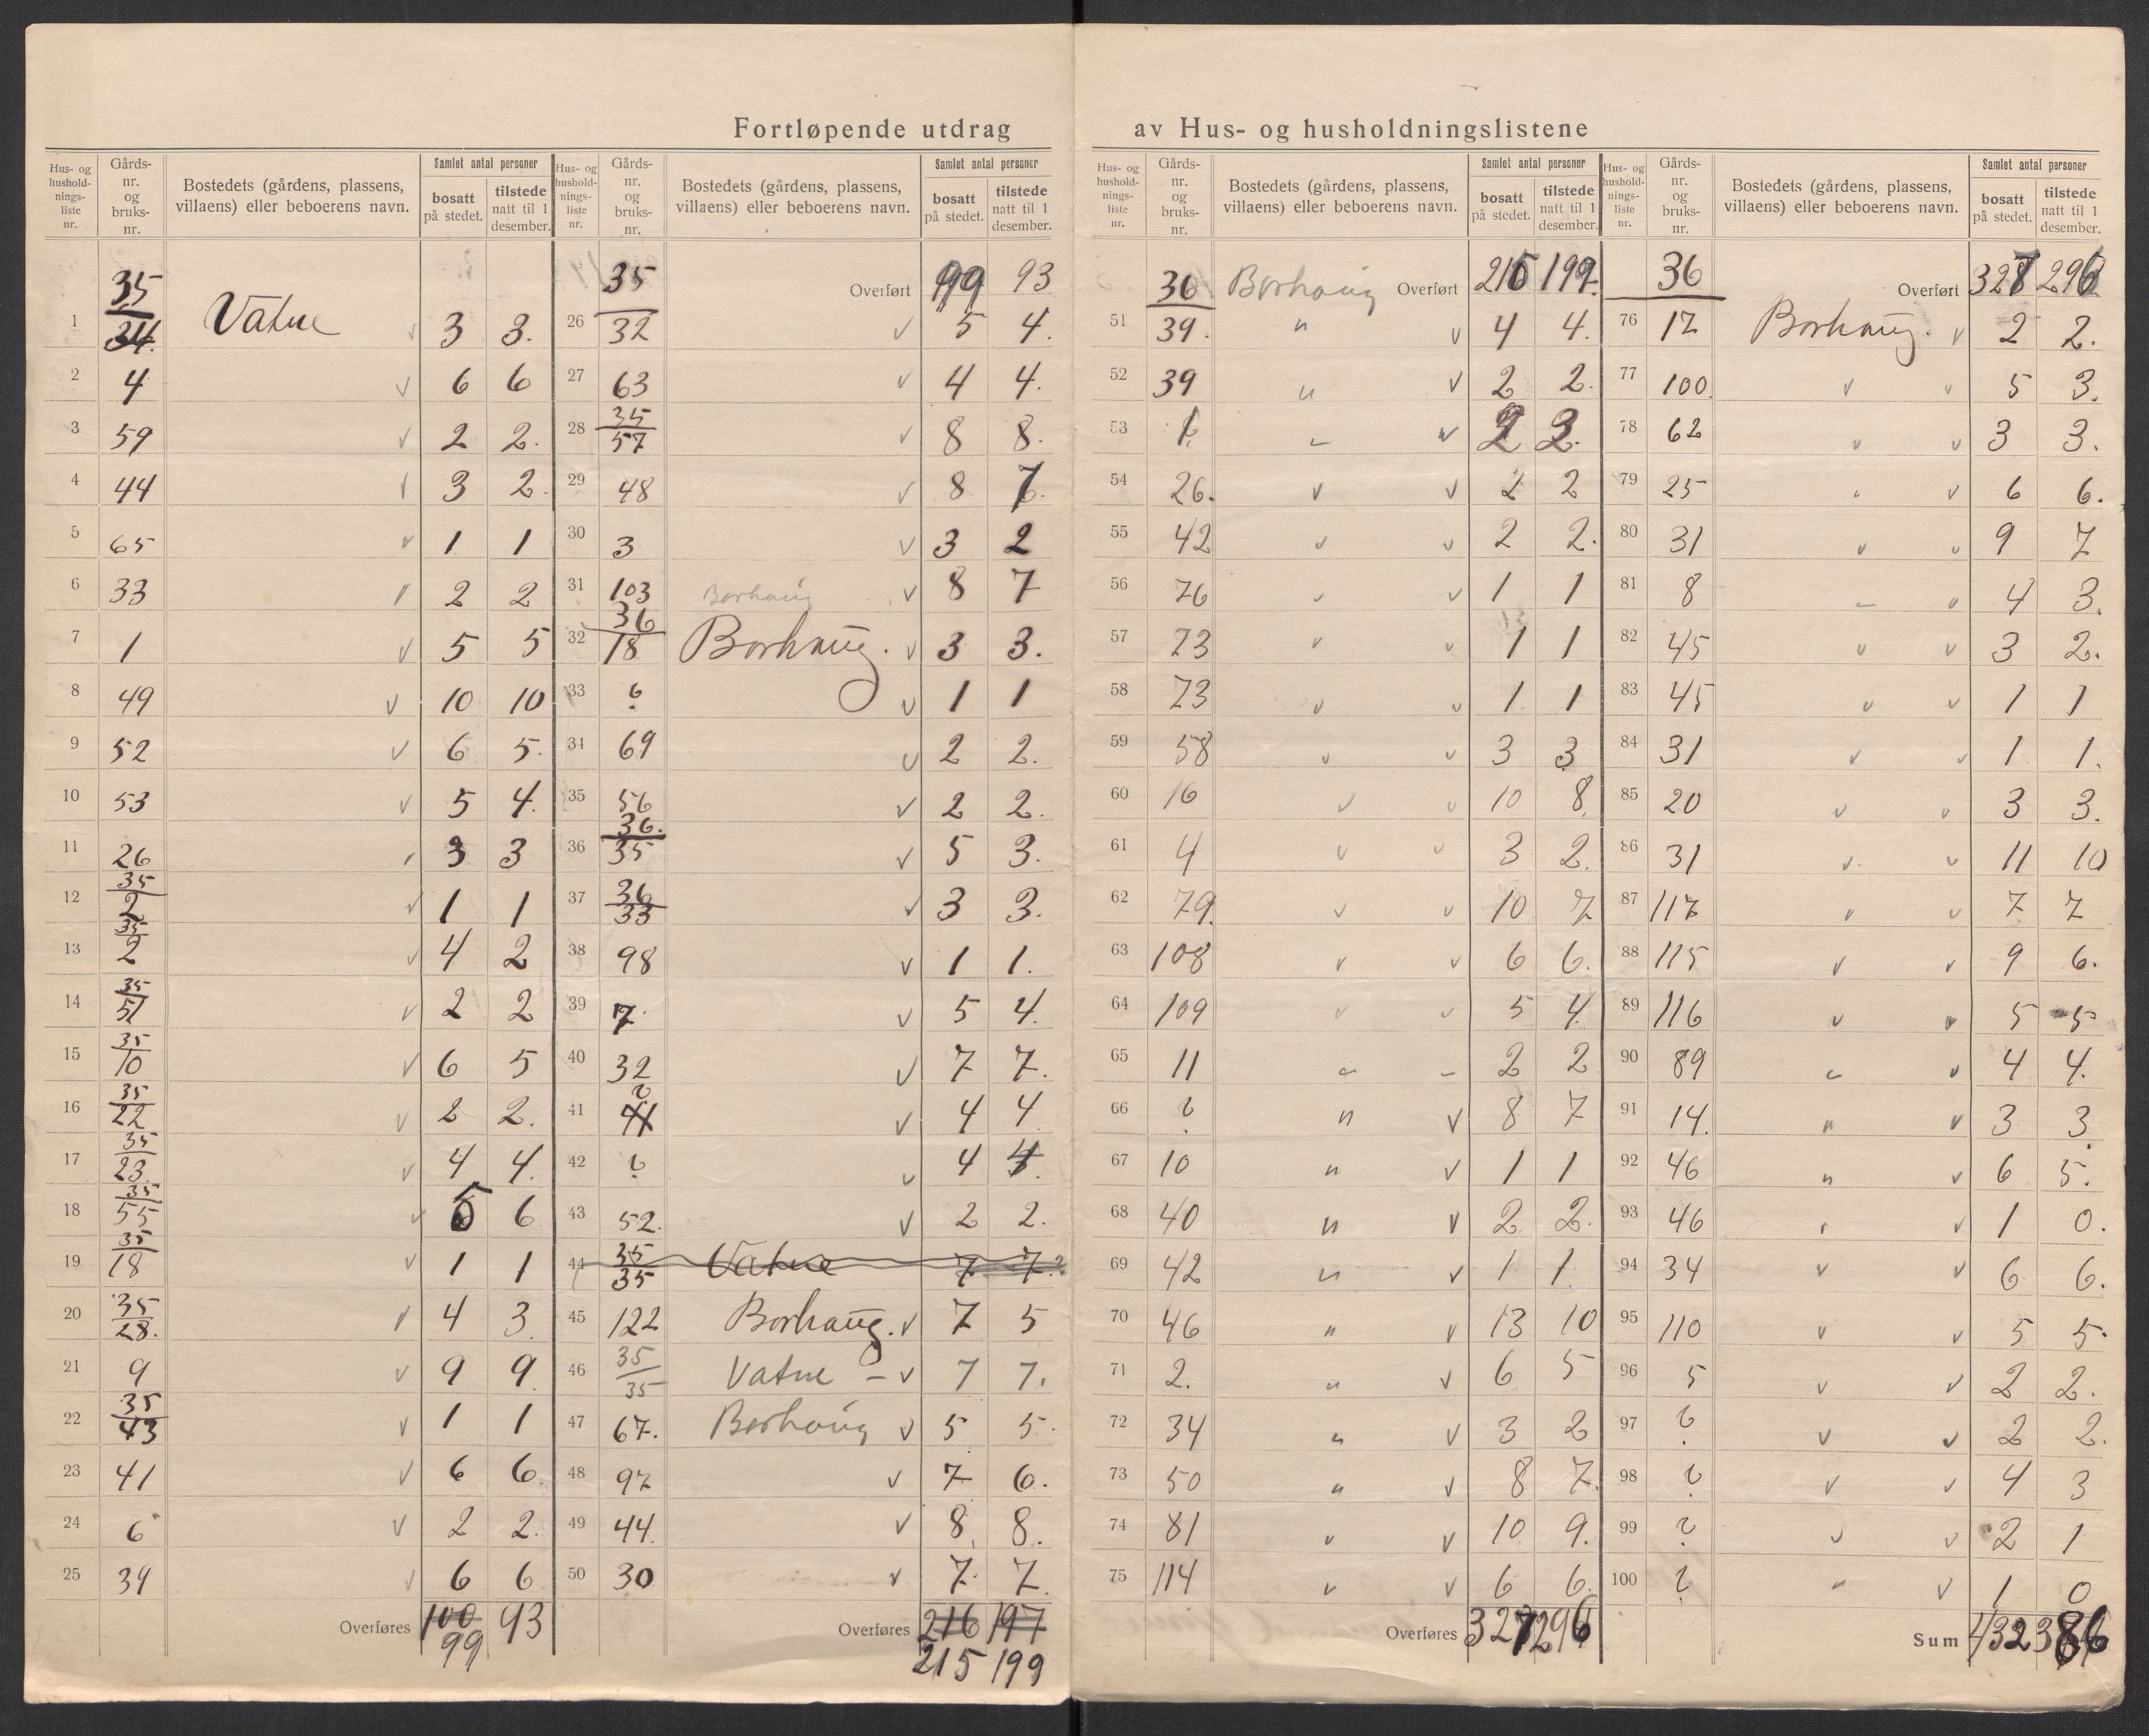 Fortløpende utdrag av Hus- og husholdningslistene
Hus- og husholdnings-liste nr. Gårds-nr. og bruks-nr. Bostedets (gårdens, plassens, villaens) eller beboerens navn. Samlet antal personer bosatt på stedet. tilstede natt til 1 desember.
35
1 34 Vatne v 3 3.
2 4 v 6 6
3 59 v 2 2.
4 44 v 3 2.
5 65 v 1 1
6 33 v 2 2
7 1 v 5 5
8 49 v 10 10
9 52 v 6 5.
10 53 v 5 4.
11 26 v 3 3
12 35/2 v 1 1
13 35/2 v 4 2
14 35/51 v 2 2
15 35/10 v 6 5
16 35/22 v 2 2.
17 35/23 v 4 4.
18 35/55 v 5 6
19 35/18 v 1 1
20 35/28. v 4 3.
21 9 v 9 9.
22 35/43 v 1 1
23 41 v 6 6.
24 6 v 2 2.
25 39 v 6 6
Overføres 100 93
99
Hus- og husholdnings-liste nr. Gårds-nr. og bruks-nr. Bostedets (gårdens, plassens, villaens) eller beboerens navn. Samlet antal personer bosatt på stedet. tilstede natt til 1 desember.
35 Overført 99 93
26 32 v 5 4.
27 63 v 4 4.
28 35/57 v 8 8.
29 48 v 8 7.
30 3 v 3 2
31 103 Borhaug v 8 7
32 36/18 Borhaug. v 3 3.
33 ? v 1 1
34 69 v 2 2.
35 56 v 2 2.
36 36./35 v 5 3.
37 36/33 v 3 3.
38 98 v 1 1.
39 7 v 5 4.
40 32 v 7 7.
41 ? 41 v 4 4
42 ? v 4 4.
43 52. v 2 2.
44 35/35 Vatne 7 7.
45 122 Borhaug. v 7 5
46 35/35 Vatne - v 7 7.
47 67. Borhaug v 5 5.
48 97 v 7 6.
49 44. v 8 8.
50 30 v 7 7.
Overføres 216 197
215 199
Hus- og husholdnings-liste nr. Gårds-nr. og bruks-nr. Bostedets (gårdens, plassens, villaens) eller beboerens navn. Samlet antal personer bosatt på stedet. tilstede natt til 1 desember.
36 Borhaug Overført 215 199.
51 39. " v 4 4.
52 39 " v 2 2.
53 " v 2 2.
54 26. v v 2 2
55 42 v v 2 2.
56 76 v v 1 1
57 73 v v 1 1
58 73 v v 1 1
59 58 v v 3 3
60 16 v v 10 8.
61 4 v v 3 2.
62 79. v v 10 7
63 108 v v 6 6.
64 109 v v 5 4.
65 11 " - 2 2
66 ? " v 8 7
67 10 " v 1 1
68 40 " v 2 2.
69 42 " v 1 1.
70 46 " v 13 10
71 2. " v 6 5
72 34 " v 3 2
73 50 " v 8 7.
74 81 v v 10 9.
75 114 v v 6 6.
Overføres 327 296
Hus- og husholdnings-liste nr. Gårds-nr. og bruks-nr. Bostedets (gårdens, plassens, villaens) eller beboerens navn. Samlet antal personer bosatt på stedet. tilstede natt til 1 desember.
36 Overført 327 296
76 17 Borhaug. v 2 2.
77 100. v v 5 3.
78 62 v v 3 3.
79 25 v v 6 6.
80 31 v v 9 7
81 8 v v 4 3.
82 45 v v 3 2.
83 45 v v 1 1
84 31 v v 1 1.
85 20 v v 3 3.
86 31 v v 11 10
87 117 v v 7 7
88 115 v v 9 6.
89 116 v v 5 5
90 89 v v 4 4.
91 14. " v 3 3.
92 46 " v 6 5.
93 46 " v 1 0.
94 34 v v 6 6.
95 110 v v 5 5.
96 5 v v 2 2.
97 ? v v 2 2.
98 ? v v 4 3
99 ? v v 2 1
100 ? " v 1 0
Sum 432 386